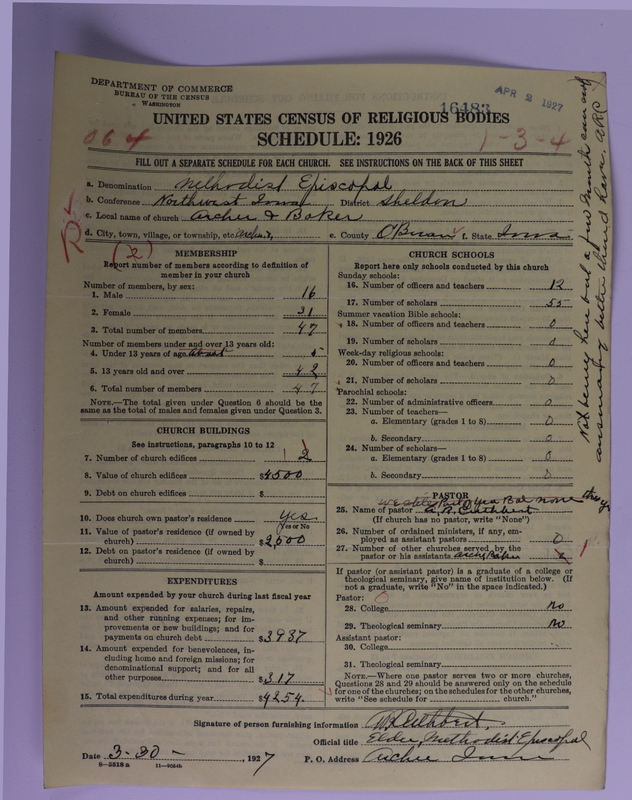 DEPARTMENT OF COMMERCE
BUREAU OF THE CENSUS
WASHINGTON
16483
APR 2 1927
UNITED STATES CENSUS OF RELIGIOUS BODIES
SCHEDULE: 1926
064
1-3-4
FILL OUT A SEPARATE SCHEDULE FOR EACH CHURCH. SEE INSTRUCTIONS ON THE BACK OF THIS SHEET
a. Denomination Methodist Episcopal
b. Conference Northwest Iowa District Sheldon
c. Local name of church Archer & Baker
d. City, town, village, or township, etc. Archer, e. County O'Brien f. State Iowa
(2)
MEMBERSHIP
Report number of members according to definition of
member in your church
Number of members, by sex:
1. Male 16
2. Female 31
3. Total number of members 47
Number of members under and over 13 years old:
4. Under 13 years of age about 5
5. 13 years old and over 42
6. Total number of members 47
NOTE.—The total given under Question 6 should be the
same as the total of males and females given under Question 3.
CHURCH BUILDINGS
See instructions, paragraphs 10 to 12
7. Number of church edifices 1 2
8. Value of church edifices $4500
9. Debt on church edifices $
10. Does church own pastor's residence? yes
Yes or No
11. Value of pastor's residence (if owned by
church) $2,500
12. Debt on pastor's residence (if owned by
church) $
EXPENDITURES
Amount expended by your church during last fiscal year
13. Amount expended for salaries, repairs,
and other running expenses; for im-
provements or new buildings; and for
payments on church debt $3937
14. Amount expended for benevolences, in-
cluding home and foreign missions; for
denominational support; and for all
other purposes $317
15. Total expenditures during year $4254.
CHURCH SCHOOLS
Report here only schools conducted by this church
Sunday schools:
16. Number of officers and teachers 12
17. Number of scholars 55
Summer vacation Bible schools:
18. Number of officers and teachers 0
19. Number of scholars 0
Week-day religious schools:
20. Number of officers and teachers 0
21. Number of scholars 0
Parochial schools:
22. Number of administrative officers 0
23. Number of teachers—
a. Elementary (grades 1 to 8) 0
b. Secondary 0
24. Number of scholars—
a. Elementary (grades 1 to 8) 0
b. Secondary 0
PASTOR
25. Name of pastor Cuthbert
(If church has no pastor, write "None")
26. Number of ordained ministers, if any, em-
ployed as assistant pastors 0
27. Number of other churches served by the
pastor or his assistants 1
If pastor (or assistant pastor) is a graduate of a college or
theological seminary, give name of institution below. (If
not a graduate, write "No" in the space indicated.)
Pastor:
28. College No
29. Theological seminary No
Assistant pastor:
30. College
31. Theological seminary
NOTE.—Where one pastor serves two or more churches,
Questions 28 and 29 should be answered only on the schedule
for one of the churches; on the schedules for the other churches,
write "See schedule for church."
Signature of person furnishing information Cuthbert.
Official title Elder, Methodist Episcopal
Date 3-30- 1927 P. O. Address Archer Iowa
8—5518a 11—9064b
Not being here but a few months can not